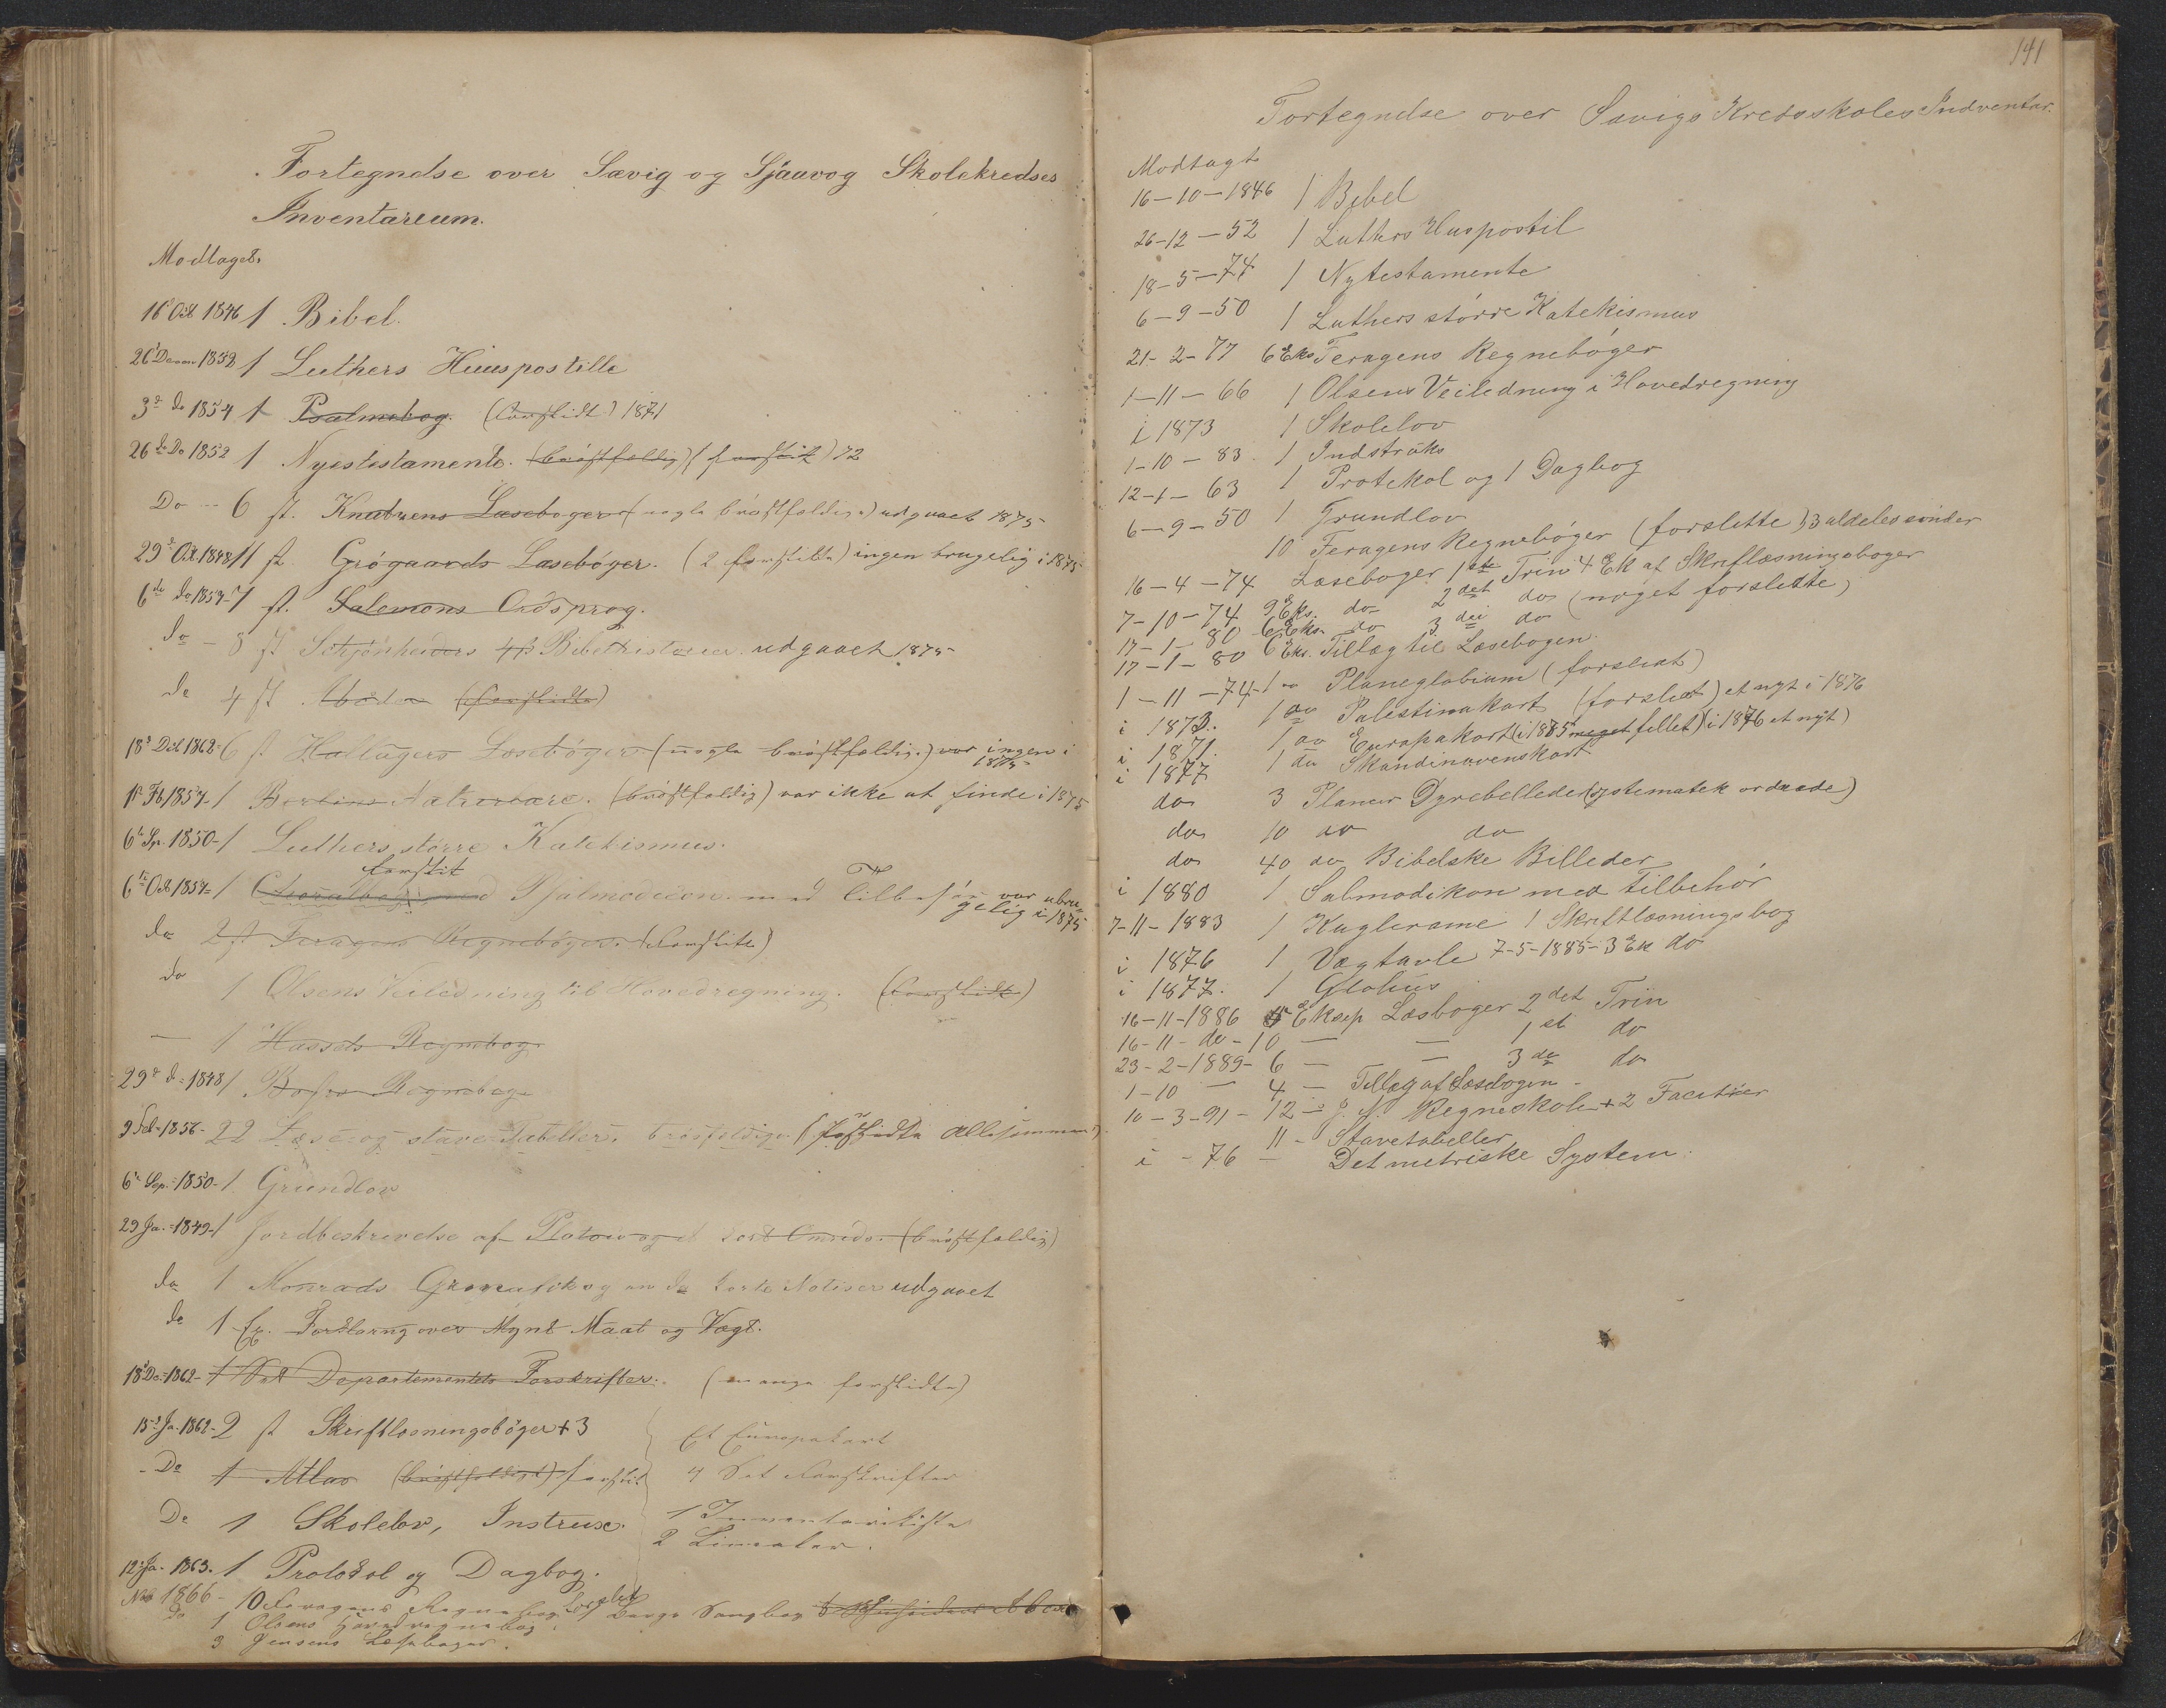 Fortegnelse over Sævig og Sjaavog Skolekredses
Inventarium.
Modtaget.
16 Oct 1846 1 Bibel.
26 Decem 1852 1 Luthers Huuspostille
3 do 1854 1 Psalmebog. (forslidt) 1871
26 Do 1852 1 Nyestestamente. (brøstfeldig) (forslit) 72
Do - 6 st. Knutzens Læsebøger (nogle brøstfeldige) udgaaet 1875
29 Oct. 1848 11 st Grøgaards Læsebøger. (2 forslidte) ingen brugelig i 1875
6te do 1854 7 st. Salemons Ordsprog.
do - 8 st Bibelhistorier. udgaaet 1875
do 4 st (forslidte)
18 Dec 1862 6 st Hallagers Læsebøger (nogle brøstfeldige.) var ingen i 1875
1 Fb 1854 1 Naturlære. (brøstfeldig) var ikke at finde i 1875
6 Sp. 1850 - 1 Luthers større Katekismus.
forslit
6te Oct 1854 - 1 Psalmodicon med Tilbehør var ubru-
gelig i 1875
do 2 st Feragens Regnebøger. (forslite)
do 1 Olsens Veiledning til Hovedregning. (forslidt)
— 1 Regnebog.
29 do - 1848 1 Regnebog
9 Feb - 1856 - 22 Læse og stave Tabeller. brøsfeldige (forslidte allesammen)
6 Sep. - 1850 - 1 Grundlov
29 Ja. - 1849 - 1 Jordbeskrivelse af Platou og et kort Omrids. (brøstfeldig)
do 1 korte Notiser udgaaet
do 1 Ex. Forklaring over Mynt Maat og Vægt.
18 De. - 1862 - 1 Set Departementets Forskrifter. (mange forslidte)
15 Ja. 1862 - 2 st Skriftlæsningsbøger + 3
Et Europakart
- Do 1 Atlas (brøstfeldigt) forslit
4 Set Forskrifter
Do 1 Skolelov, Instrux.
1 Inventarieliste
2 Linealer.
12 Ja. 1863. 1 Protokol og Dagbog.
Nov 1866 - 10 Feragens Regnebog Sangbog
Do 1 Olsens Hovedregnebog.
3 Jensens Læsebøger.
141
Fortegndse over Sævigs Kredsskoles Indventar.
Modtagt
16-10-1846 1 Bibel
26-12-52 1 Luthers Huspostil
18-5-74 1 Nytestamente
6-9-50 1 Luthers større Katekismus
21-2-77 6 Eks Feragens Regnebøger
1-11-66 1 Olsens Veiledning i Hovedregning
i 1873 1 Skolelov
1-10-83. 1 Indstruks
12-1-63 1 Protekol og 1 Dagbog
6-9-50 1 Grundlov
10 Feragens Regnebøger (forslette) 3 aldeles sønder
16-4-74 Læsebøger 1ste Trin 4 Ek af Skriflæsningsbøger
7-10-74 9 Eks. do 2det do (noget forslette)
17-1-80 6 Eks. do 3die do
17-1-80 6 Eks. Tillæg til Læsebogen.
1-11-74 - 1 Planeglobium (forslidt)
i 1873. 1 do Palestinakart (forsledt) et nyt i 1876
i 1871. 1 do Europakart (i 1875 meget fillet) (i 1876 et nyt)
i 1877 1 do Skandinavenskart
do 3 Plancer Dyrebelleder (systematek ordnede)
do 10 do do
do 40 do Bibelske Billeder
i 1880 1 Salmodikon med tilbehør
7-11-1883 1 Kuglerame 1 Skriftlæsningsbog
i 1876 1 Vægtavle 7-5-1885-3 Ek do
i 1877. 1 Globus
16-11-1886 Eksep Læsbøger 2det Trin
16-11-do-10 — — 1st do
23-2-1889- 6 — — 3de do
1-10 — 4 — Tillæg af Læsebogen -
10-3-91-12 - J. N. Regneskole + 2 Facitier
11 - Stavetabeller
i - 76 - Det metriske System.